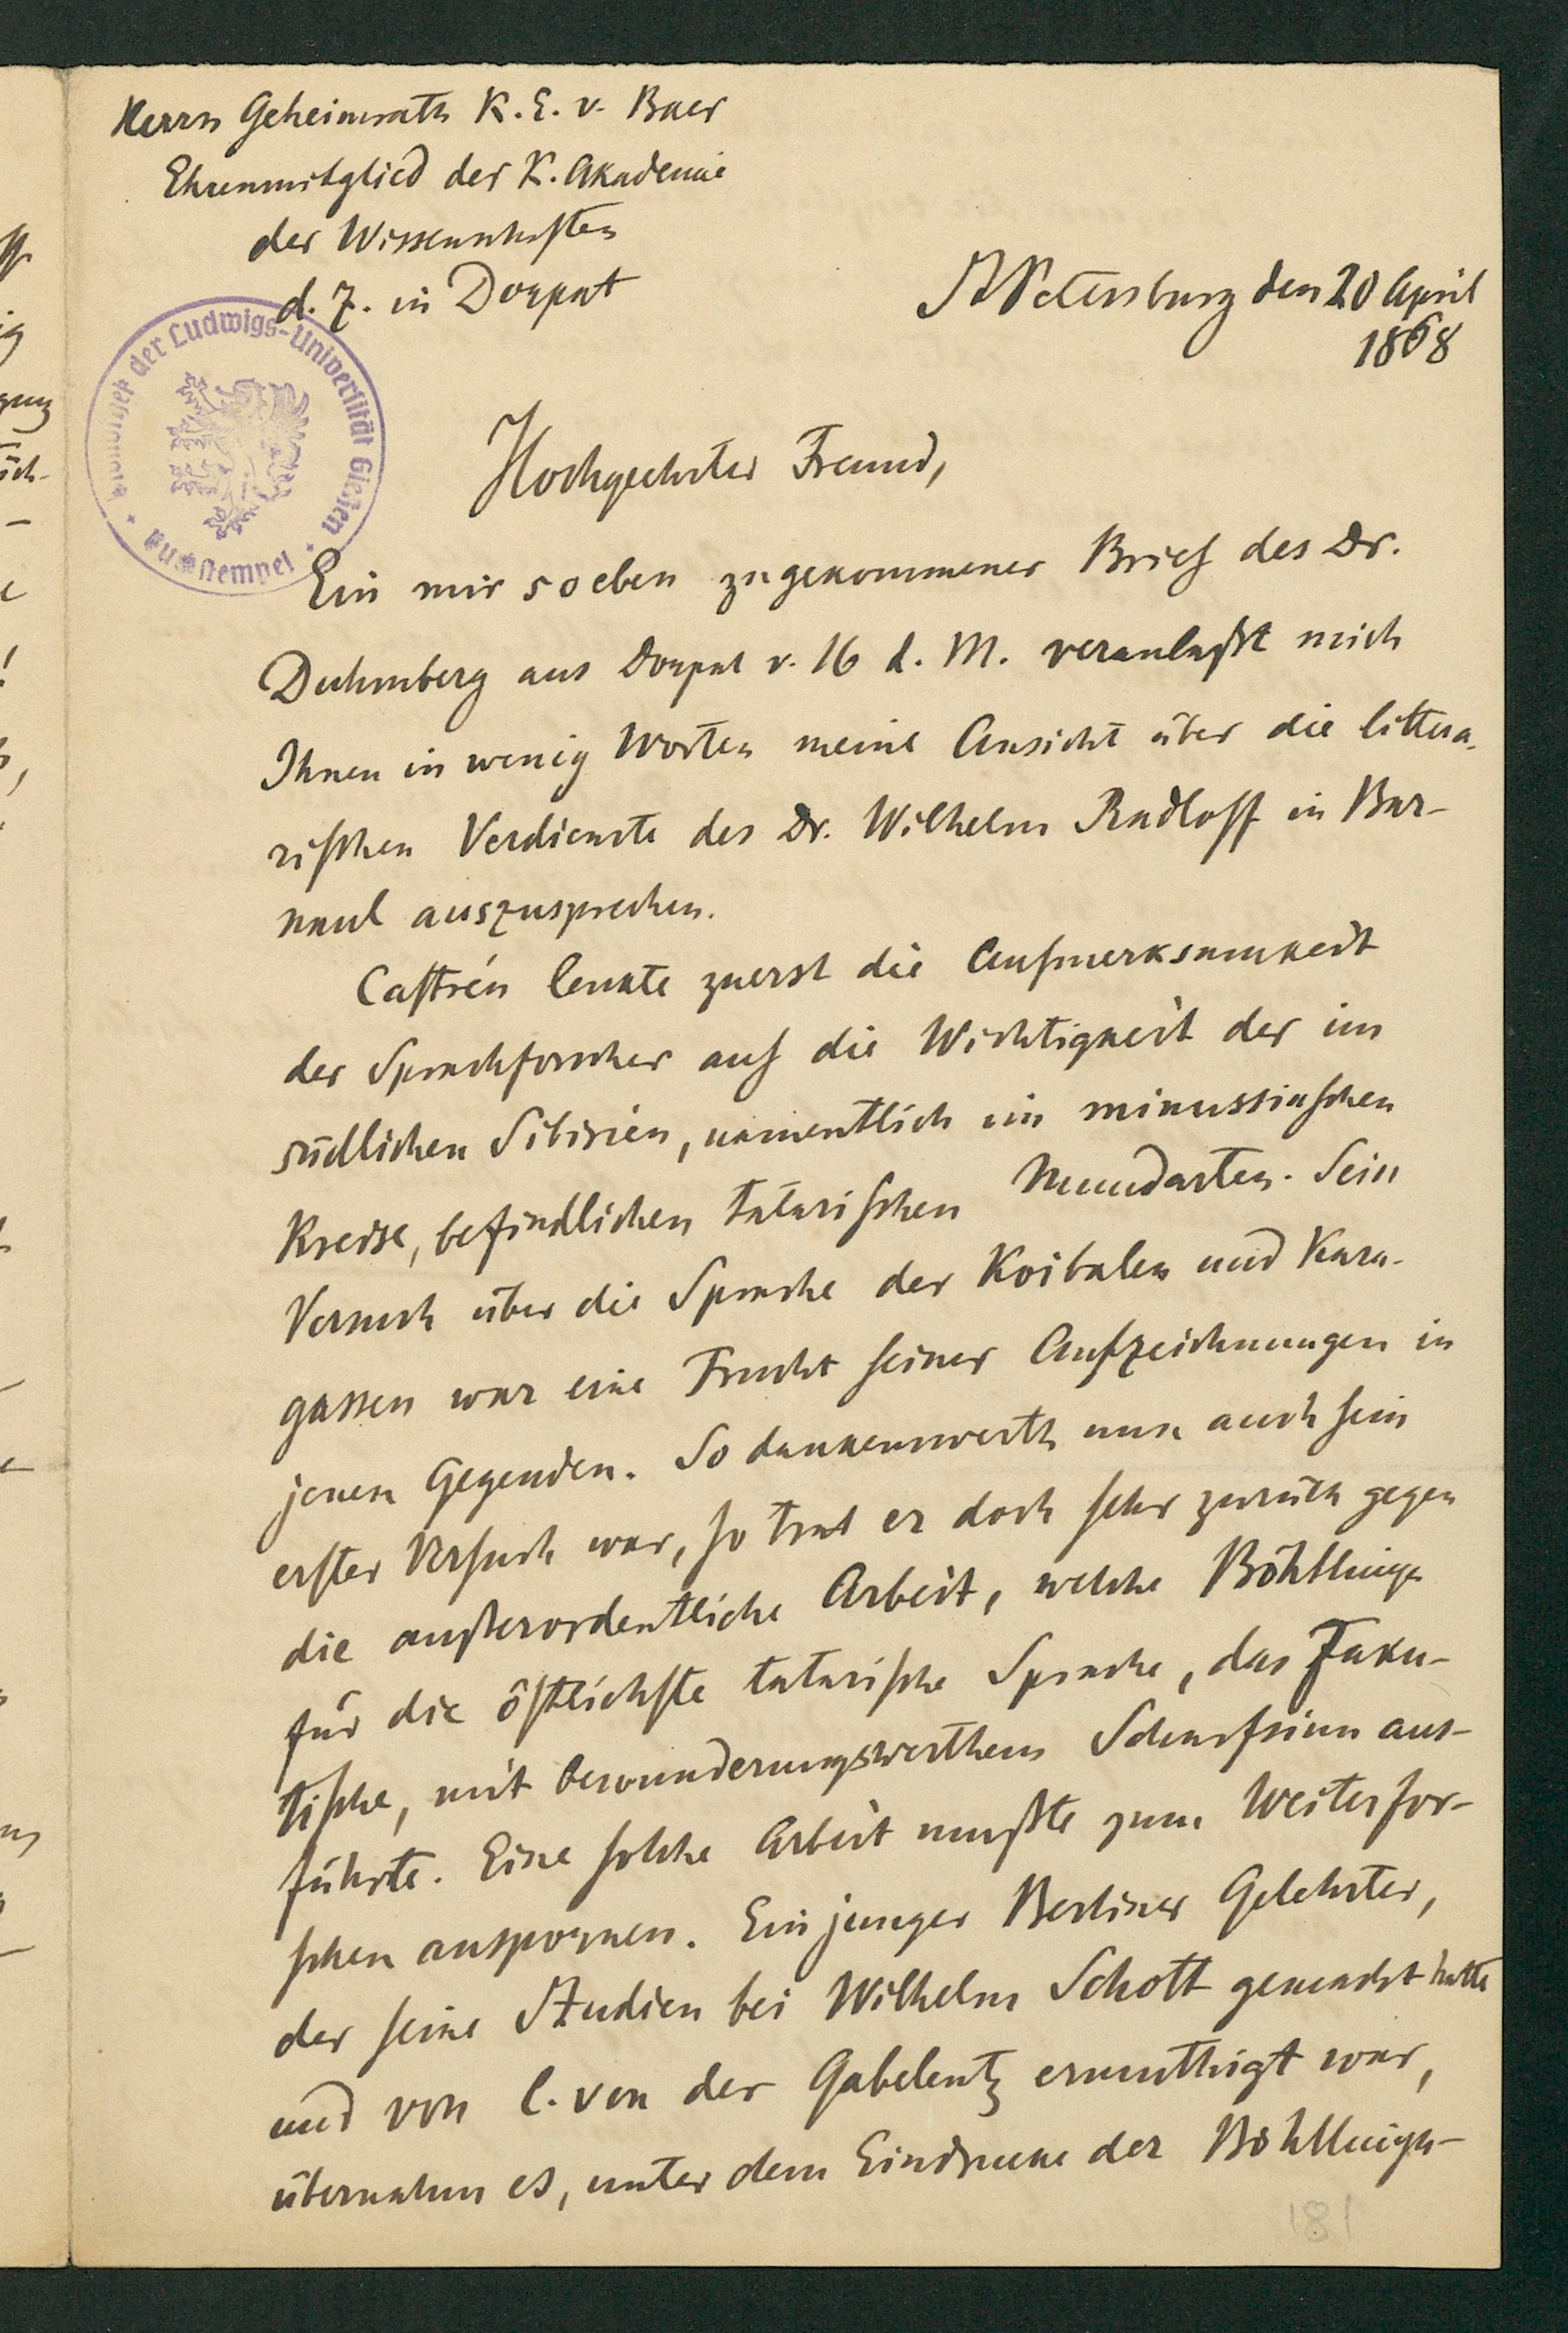 Herrn Geheimrath K. E. v. Baer
Ehrenmitglied der K. Akademie
der Wissenschaften
d. Z. in Dorpat
St Petersburg den 20 April
1868
Bibliothek der Ludwigs-Universität Gießen
Austempel
Hochgeehrter Freund,
Ein mir soeben zugekommener Brief des Dr.
Duhmberg aus Dorpat v. 16 d. M. veranlaßt mich
Ihnen in wenig Worten meine Ansicht über die littera-
rischen Verdienste des Dr. Wilhelm Radloff in Bar-
naul auszusprechen.
Castrén lenkte zuerst die Aufmerksamkeit
der Sprachforscher auf die Wichtigkeit der im
südlichen Sibirien, namentlich im minussinschen
Kreise, befindlichen tatarischen Mundarten. Sein
Versuch über die Sprache der Koibalen und Kara-
gassen war eine Frucht seiner Aufzeichnungen in
jenen Gegenden. So dankenswerth nun auch sein
erster Versuch war, so trat er doch sehr zurück gegen
die außerordentliche Arbeit, welche Böhtlingk
für die östlichste tatarische Sprache, das Jaku-
tische, mit bewunderungswerthem Scharfsinn aus-
führte. Eine solche Arbeit mußte zum Weiterfor-
schen anspornen. Ein junger Berliner Gelehrter,
der seine Studien bei Wilhelm Schott gemacht hatte
und von C. von der Gabelentz ermuthigt war,
übernahm es, unter dem Eindrucke der Böhtlingk-
181